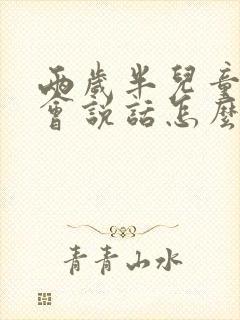 兩歲半兒童
會說話怎麼
青青山水